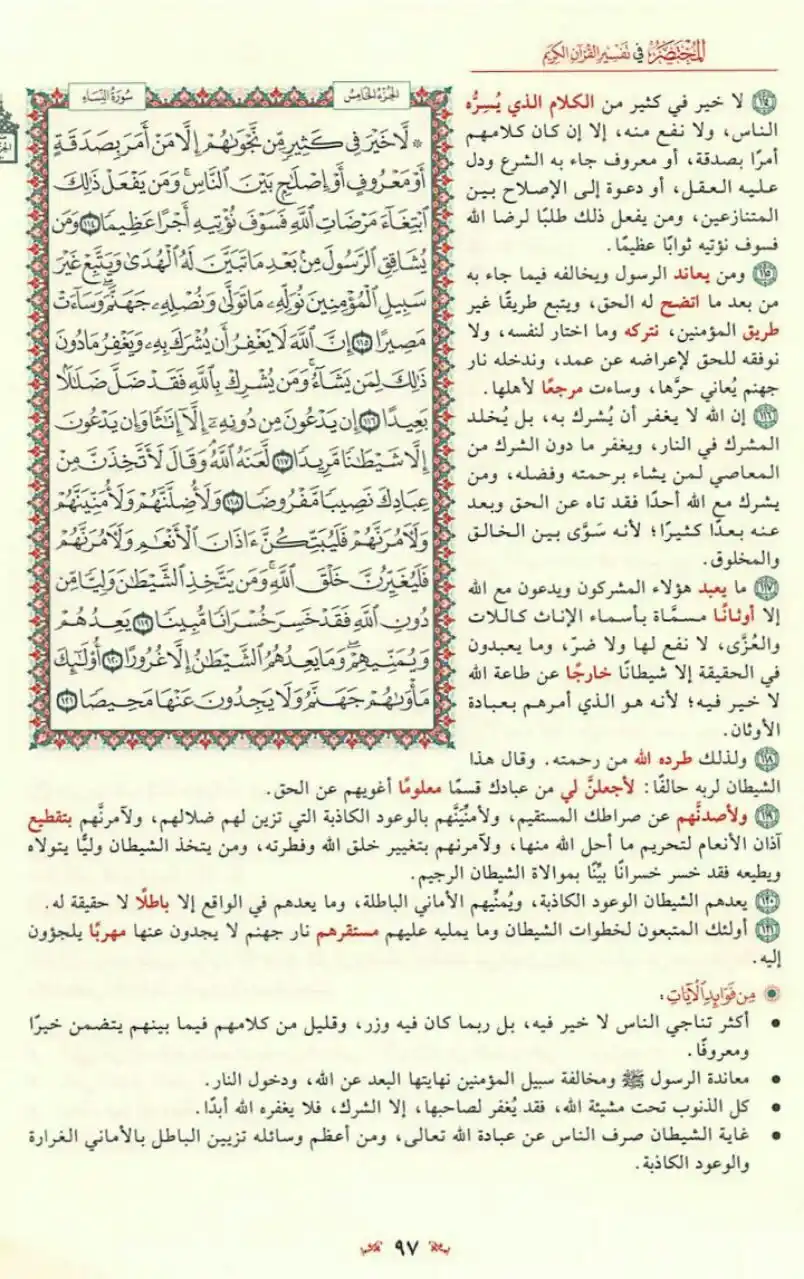 المختصر في تفسير القرآن الكريم
الجزء الخامس
سورة النساء
* لَّا خَيْرَ فِي كَثِيرٍ مِّن نَّجْوَىٰهُمْ إِلَّا مَنْ أَمَرَ بِصَدَقَةٍ
أَوْ مَعْرُوفٍ أَوْ إِصْلَٰحٍۭ بَيْنَ ٱلنَّاسِۚ وَمَن يَفْعَلْ ذَٰلِكَ
ٱبْتِغَآءَ مَرْضَاتِ ٱللَّهِ فَسَوْفَ نُؤْتِيهِ أَجْرًا عَظِيمًا ١١٤ وَمَن
يُشَاقِقِ ٱلرَّسُولَ مِنۢ بَعْدِ مَا تَبَيَّنَ لَهُ ٱلْهُدَىٰ وَيَتَّبِعْ غَيْرَ
سَبِيلِ ٱلْمُؤْمِنِينَ نُوَلِّهِۦ مَا تَوَلَّىٰ وَنُصْلِهِۦ جَهَنَّمَۖ وَسَآءَتْ
مَصِيرًا ١١٥ إِنَّ ٱللَّهَ لَا يَغْفِرُ أَن يُشْرَكَ بِهِۦ وَيَغْفِرُ مَا دُونَ
ذَٰلِكَ لِمَن يَشَآءُۚ وَمَن يُشْرِكْ بِٱللَّهِ فَقَدْ ضَلَّ ضَلَٰلًۢا
بَعِيدًا ١١٦ إِن يَدْعُونَ مِن دُونِهِۦٓ إِلَّآ إِنَٰثًا وَإِن يَدْعُونَ
إِلَّا شَيْطَٰنًا مَّرِيدًا ١١٧ لَّعَنَهُ ٱللَّهُۘ وَقَالَ لَأَتَّخِذَنَّ مِنْ
عِبَادِكَ نَصِيبًا مَّفْرُوضًا ١١٨ وَلَأُضِلَّنَّهُمْ وَلَأُمَنِّيَنَّهُمْ
وَلَءَامُرَنَّهُمْ فَلَيُبَتِّكُنَّ ءَاذَانَ ٱلْأَنْعَٰمِ وَلَءَامُرَنَّهُمْ
فَلَيُغَيِّرُنَّ خَلْقَ ٱللَّهِۚ وَمَن يَتَّخِذِ ٱلشَّيْطَٰنَ وَلِيًّا مِّن
دُونِ ٱللَّهِ فَقَدْ خَسِرَ خُسْرَانًا مُّبِينًا ١١٩ يَعِدُهُمْ
وَيُمَنِّيهِمْۖ وَمَا يَعِدُهُمُ ٱلشَّيْطَٰنُ إِلَّا غُرُورًا ١٢٠ أُوْلَٰٓئِكَ
مَأْوَىٰهُمْ جَهَنَّمُ وَلَا يَجِدُونَ عَنْهَا مَحِيصًا ١٢١
١١٤ لا خير في كثير من الكلام الذي يُسِرُّه
الناس، ولا نفع منه، إلا إن كان كلامهم
أمرًا بصدقة، أو معروف جاء به الشرع ودل
عليه العقل، أو دعوة إلى الإصلاح بين
المتنازعين، ومن يفعل ذلك طلبًا لرضا الله
فسوف نؤتيه ثوابًا عظيمًا.
١١٥ ومن يعاند الرسول ويخالفه فيما جاء به
من بعد ما اتضح له الحق، ويتبع طريقًا غير
طريق المؤمنين، نتركه وما اختار لنفسه، ولا
نوفقه للحق لإعراضه عن عمد، وندخله نار
جهنم يُعاني حرَّها، وساءت مرجعًا لأهلها.
١١٦ إن الله لا يغفر أن يُشرك به، بل يُخلد
المشرك في النار، ويغفر ما دون الشرك من
المعاصي لمن يشاء برحمته وفضله، ومن
يشرك مع الله أحدًا فقد تاه عن الحق وبعد
عنه بعدًا كثيرًا؛ لأنه سَوَّى بين الخالق
والمخلوق.
١١٧ ما يعبد هؤلاء المشركون ويدعون مع الله
إلا أوثانًا مسمَّاة بأسماء الإناث كاللات
والعُزَّى، لا نفع لها ولا ضرّ، وما يعبدون
في الحقيقة إلا شيطانًا خارجًا عن طاعة الله
لا خير فيه؛ لأنه هو الذي أمرهم بعبادة
الأوثان.
١١٨ ولذلك طرده الله من رحمته. وقال هذا
الشيطان لربه حالفًا: لأجعلنَّ لي من عبادك قسمًا معلومًا أغويهم عن الحق.
١١٩ ولأصدنَّهم عن صراطك المستقيم، ولأمنِّيَنَّهم بالوعود الكاذبة التي تزين لهم ضلالهم، ولآمرنَّهم بتقطيع
آذان الأنعام لتحريم ما أحل الله منها، ولآمرنهم بتغيير خلق الله وفطرته، ومن يتخذ الشيطان وليًّا يتولاه
ويطيعه فقد خسر خسرانًا بيِّنًا بموالاة الشيطان الرجيم.
١٢٠ يعدهم الشيطان الوعود الكاذبة، ويُمنِّيهم الأماني الباطلة، وما يعدهم في الواقع إلا باطلًا لا حقيقة له.
١٢١ أولئك المتبعون لخطوات الشيطان وما يمليه عليهم مستقرهم نار جهنم لا يجدون عنها مهربًا يلجؤون
إليه.
من فوائد الآيات:
• أكثر تناجي الناس لا خير فيه، بل ربما كان فيه وزر، وقليل من كلامهم فيما بينهم يتضمن خيرًا
ومعروفًا.
• معاندة الرسول ﷺ ومخالفة سبيل المؤمنين نهايتها البعد عن الله، ودخول النار.
• كل الذنوب تحت مشيئة الله، فقد يُغفر لصاحبها، إلا الشرك، فلا يغفره الله أبدًا.
• غاية الشيطان صرف الناس عن عبادة الله تعالى، ومن أعظم وسائله تزيين الباطل بالأماني الغرارة
والوعود الكاذبة.
٩٧